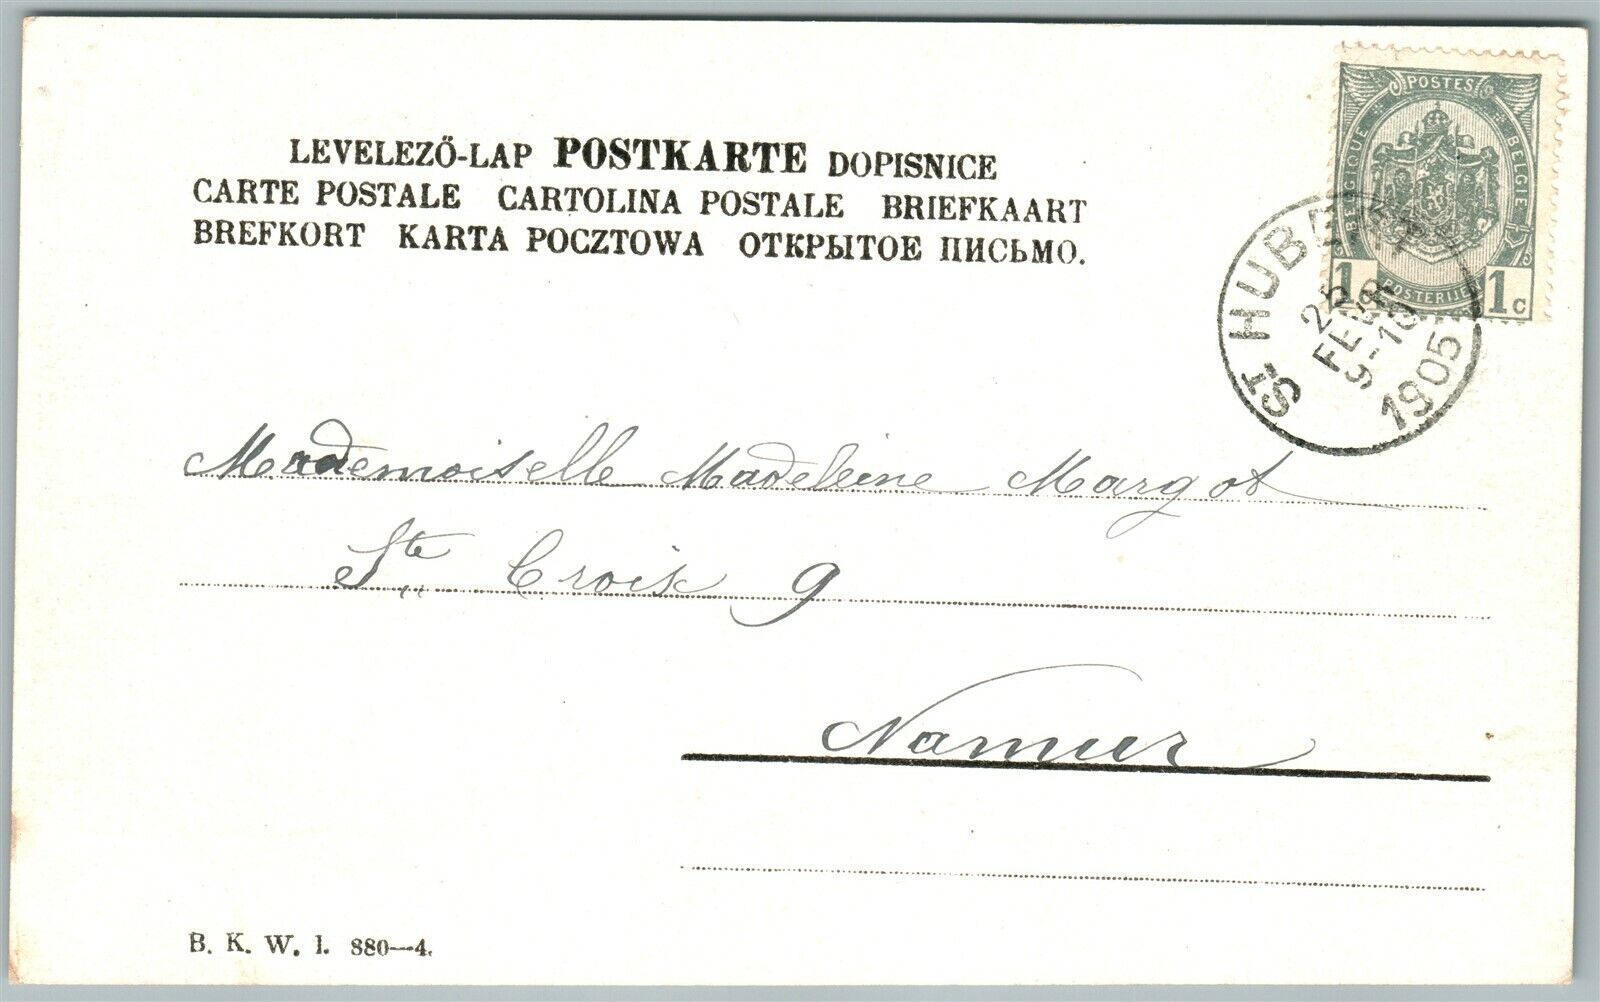 LEVELEZŐ-LAP POSTKARTE DOPISNICE
CARTE POSTALE CARTOLINA POSTALE BRIEFKAART
BREFKORT KARTA POCZTOWA ОТКРЫТОЕ ПИСЬМО.
POSTES
BELGIQUE
BELGIE
POSTERIJEN
1 1c
ST HUBERT
25
FEVR
9-10
1905
Mademoiselle Madeleine Margot
Ste Croix 9
Namur
B. K. W. I. 880—4.